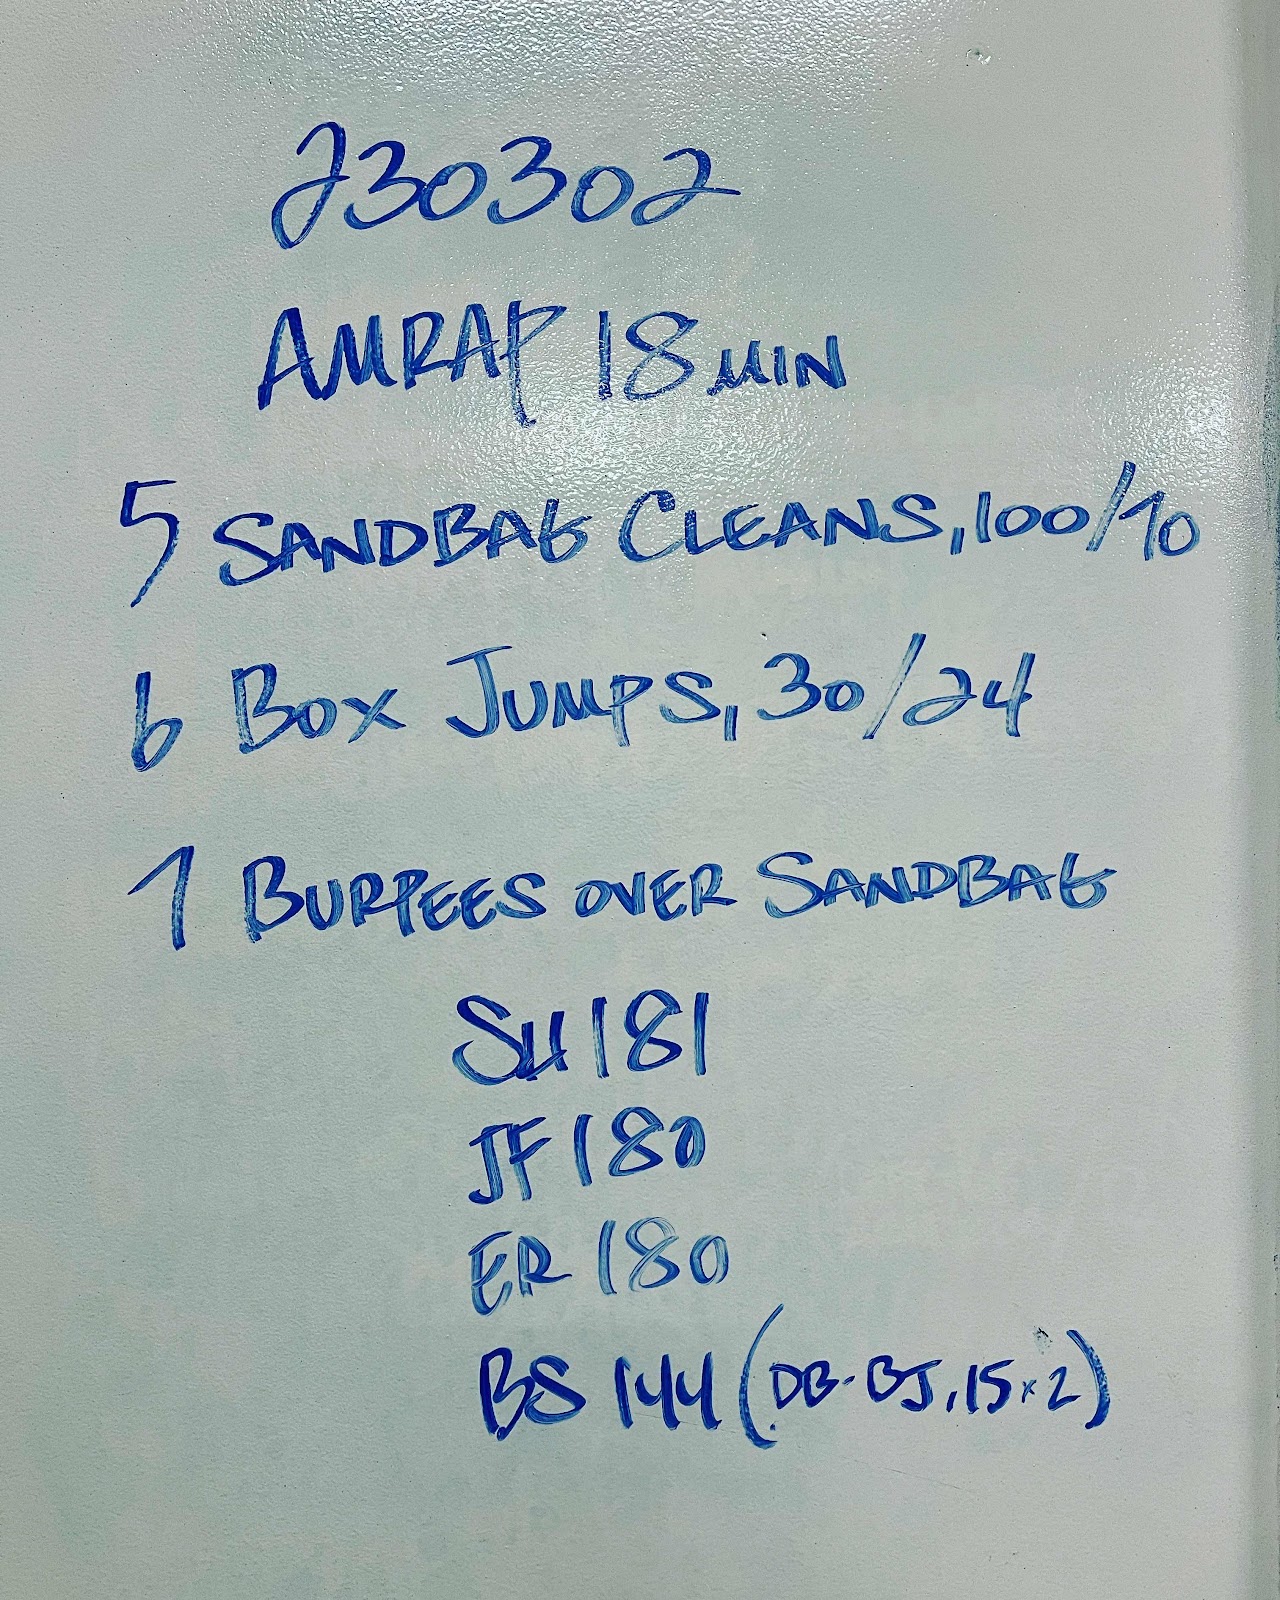 230302
AMRAP 18 MIN
5 SANDBAG CLEANS, 100/70
6 BOX JUMPS, 30/24
7 BURPEES OVER SANDBAG
SH 181
JF 180
ER 180
BS 144 (DB-BJ, 15x2)